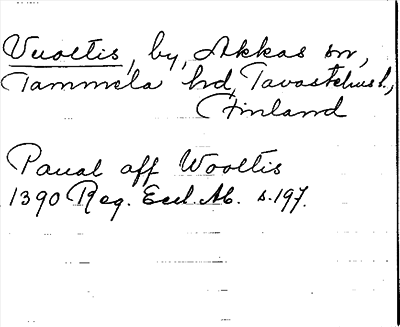 Vuoltis, by, Akkas sn,
Tammela hd, Tavastehus l.,
Finland
Paual aff Wooltis
1390 Reg. Eccl. Ab. s. 197.